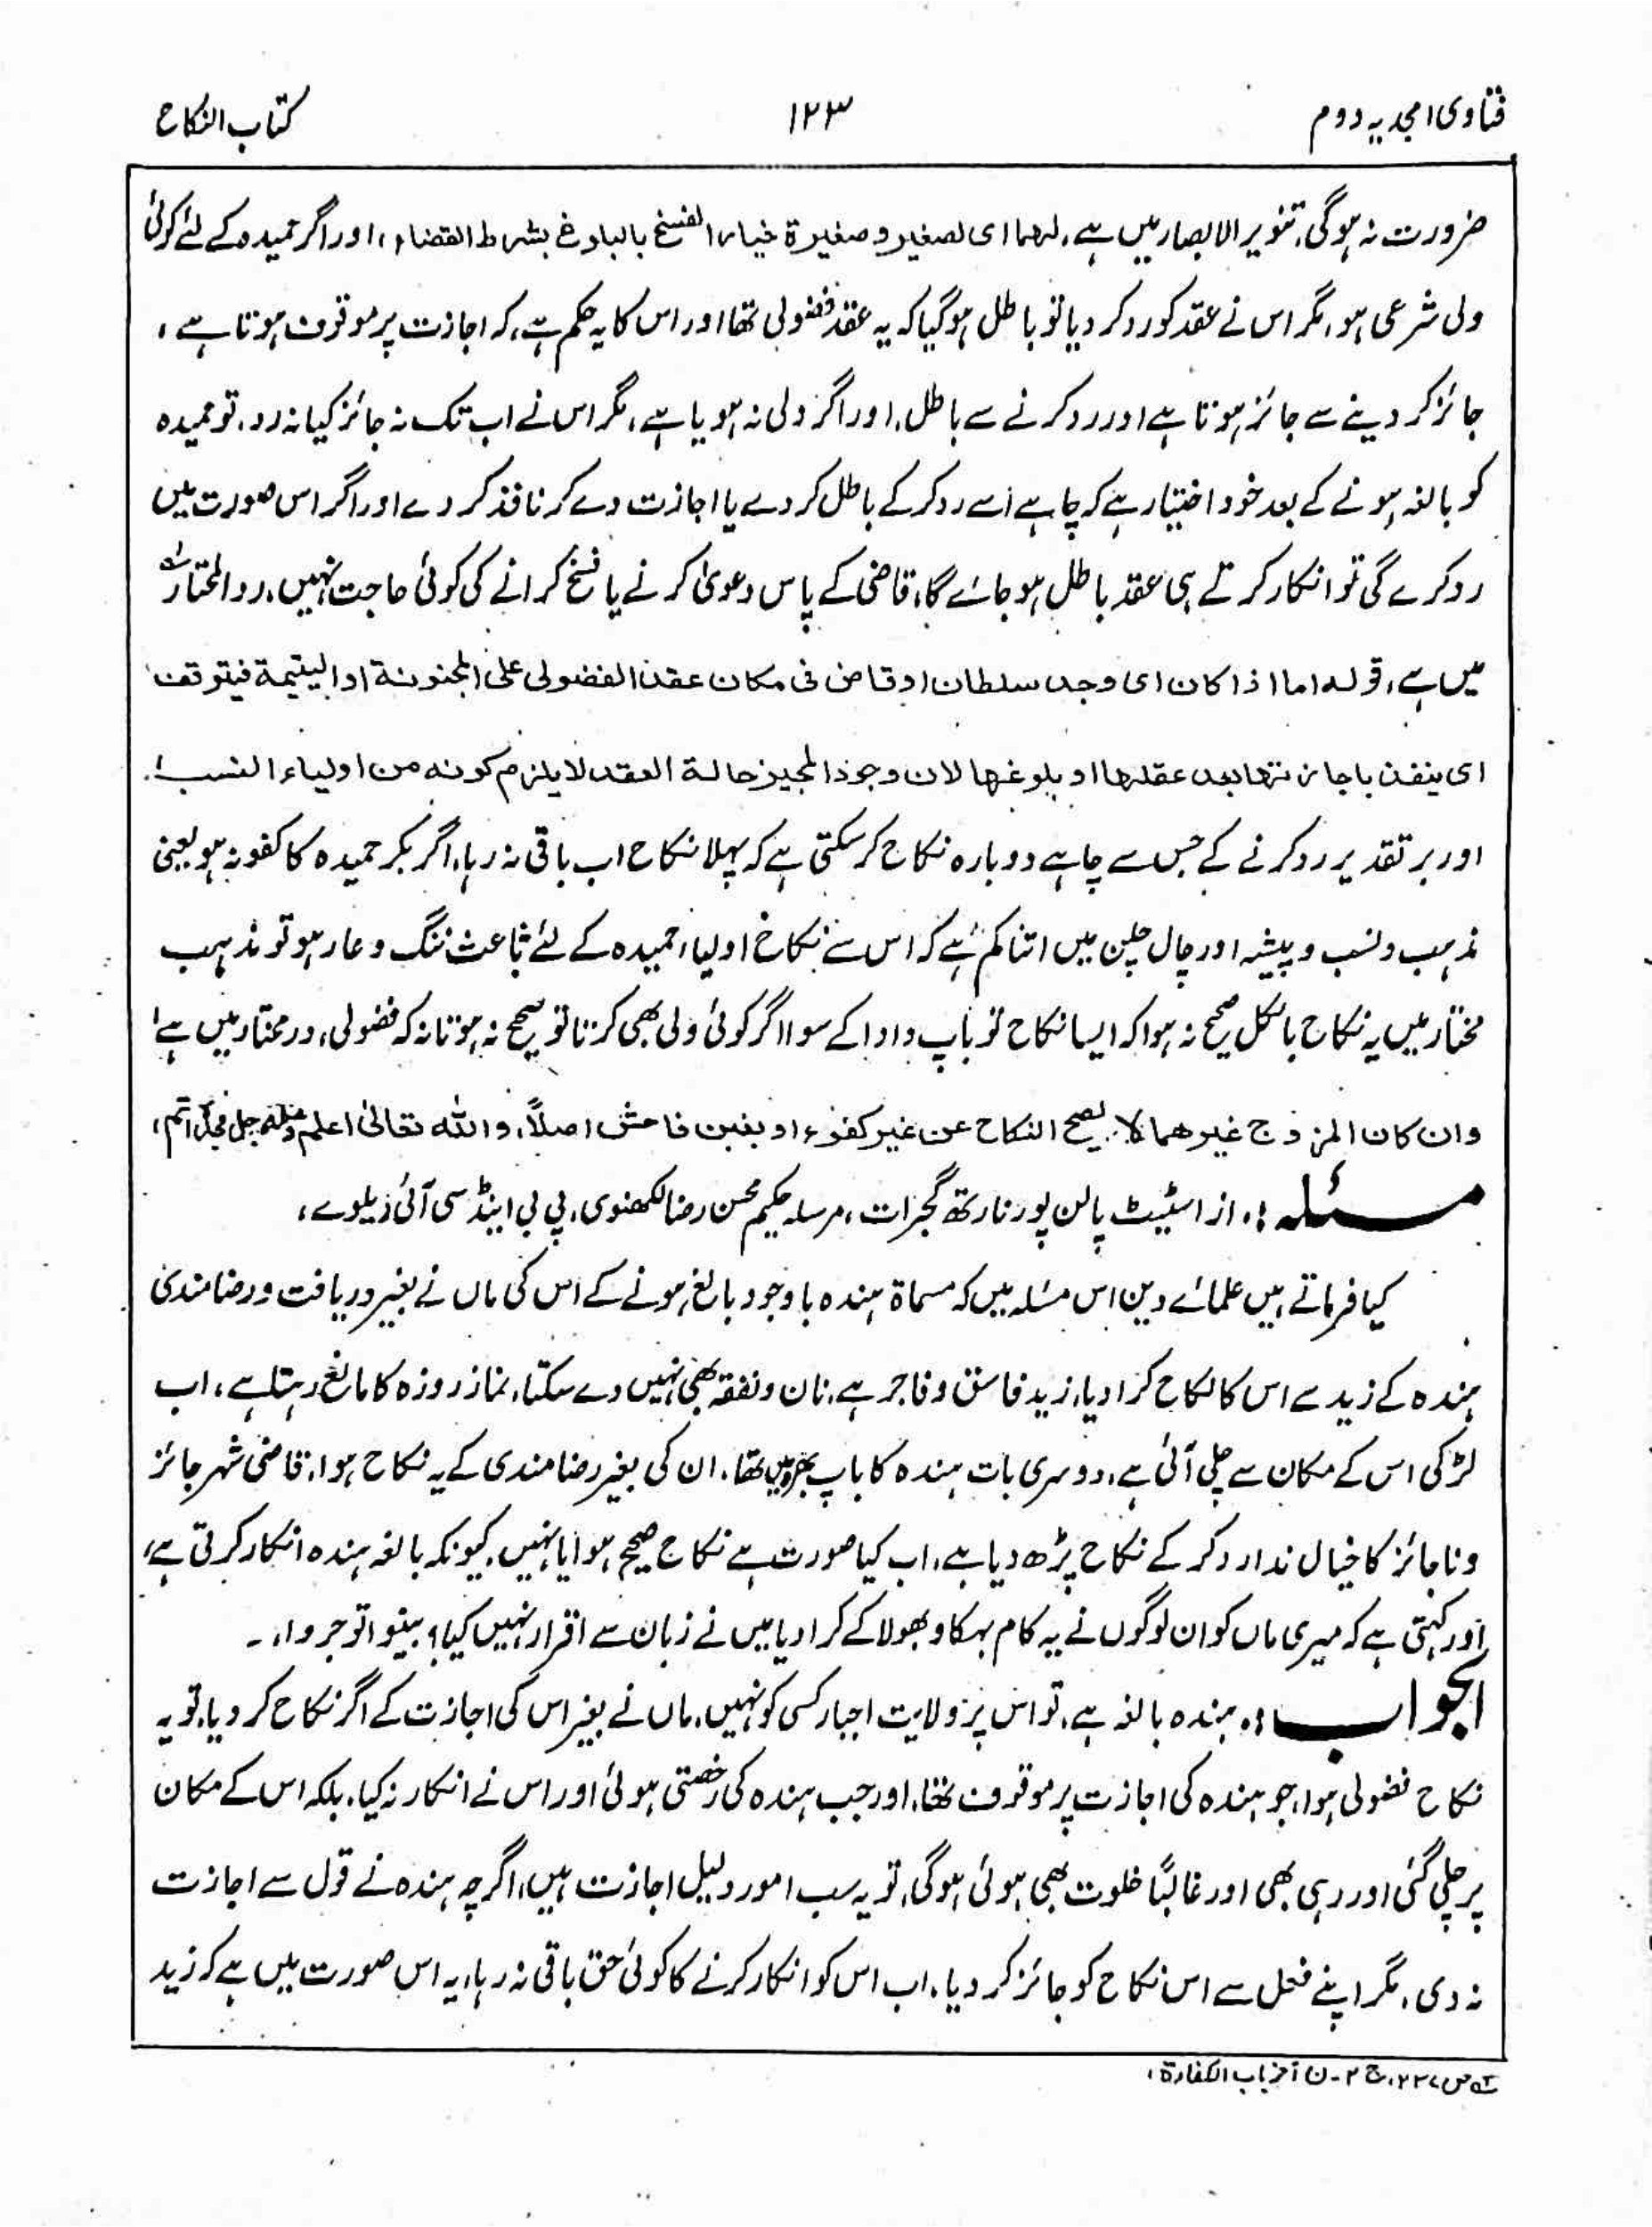 فتاوی امجدیہ دوم
۱۲۳
کتاب النکاح
ضرورت نہ ہوگی، تنویر الابصار میں ہے، لہما ای لصغیر وصغیرۃ خیار الفسخ بالبلوغ بشرط القضاء، اور اگر حمیدہ کے لئے کوئی
ولی شرعی ہو، مگر اس نے عقد کو رد کر دیا تو باطل ہوگیا کہ یہ عقد فضولی تھا اور اس کا یہ حکم ہے، کہ اجازت پر موقوف ہوتا ہے،
جائز کر دینے سے جائز ہوتا ہے اور رد کرنے سے باطل، اور اگر ولی نہ ہو یا ہے، مگر اس نے اب تک نہ جائز کیا نہ رد، تو حمیدہ
کو بالغہ ہونے کے بعد خود اختیار ہے کہ چاہے اسے رد کر کے باطل کر دے یا اجازت دے کر نافذ کر دے اور اگر اس صورت میں
رد کرے گی تو انکار کرتے ہی عقد باطل ہو جائے گا، قاضی کے پاس دعویٰ کرنے یا فسخ کرانے کی کوئی حاجت نہیں، رد المحتار ؎
میں ہے، قولہ اما اذا کان ای وجد سلطان او قاض فی مکان عقد الفضولی علی المجنونۃ او الیتیمۃ فیتوقف
ای ینفذ باجازتہا بعد عقلہا او بلوغہا لان وجود المجیز حالۃ العقد لا یلزم کونہ من اولیاء النسب ا
اور بر تقدیر رد کرنے کے جس سے چاہے دوبارہ نکاح کر سکتی ہے کہ پہلا نکاح اب باقی نہ رہا، اگر بکر حمیدہ کا کفو نہ ہو یعنی
مذہب ونسب و پیشہ اور چال چلن میں اتنا کم ہے کہ اس سے نکاح اولیاء حمیدہ کے لئے باعث ننگ و عار ہو تو مذہب
مختار میں یہ نکاح بالکل صحیح نہ ہوا کہ ایسا نکاح تو باپ دادا کے سوا اگر کوئی ولی بھی کرتا تو صحیح نہ ہوتا نہ کہ فضولی، در مختار میں ہے
وان کان المزوج غیرھما لا یصح النکاح عن غیر کفوء او بغبن فاحش اصلاً، واللہ تعالیٰ اعلم وعلمہ جل مجدہ اتم،
مسئلہ :۔ از اسٹیٹ پالن پور نارتھ گجرات، مرسلہ حکیم محسن رضا لکھنوی، پی بی اینڈ سی آئی ریلوے،
کیا فرماتے ہیں علمائے دین اس مسئلہ میں کہ مسماۃ ہندہ باوجود بالغ ہونے کے اس کی ماں نے بغیر دریافت و رضامندی
ہندہ کے زید سے اس کا نکاح کرا دیا، زید فاسق و فاجر ہے، نان و نفقہ بھی نہیں دے سکتا، نماز روزہ کا مانع رہتا ہے، اب
لڑکی اس کے مکان سے چلی آئی ہے، دوسری بات ہندہ کا باپ تھا، ان کی بغیر رضامندی کے یہ نکاح ہوا، قاضی شہر جائز
و ناجائز کا خیال ندارد کر کے نکاح پڑھ دیا ہے، اب کیا صورت ہے نکاح صحیح ہوا یا نہیں، کیونکہ بالغہ ہندہ انکار کرتی ہے،
اور کہتی ہے کہ میری ماں کو ان لوگوں نے یہ کام بہکا و بھولا کے کرا دیا میں نے زبان سے اقرار نہیں کیا، بینوا توجروا، ـ
الجواب :۔ ہندہ بالغہ ہے، تو اس پر ولایت اجبار کسی کو نہیں، ماں نے بغیر اس کی اجازت کے اگر نکاح کر دیا، تو یہ
نکاح فضولی ہوا، جو ہندہ کی اجازت پر موقوف تھا، اور جب ہندہ کی رخصتی ہوئی اور اس نے انکار نہ کیا، بلکہ اس کے مکان
پر چلی گئی اور رہی بھی اور غالباً خلوت بھی ہوئی ہوگی، تو یہ سب امور دلیل اجازت ہیں، اگرچہ ہندہ نے قول سے اجازت
نہ دی، مگر اپنے فعل سے اس نکاح کو جائز کر دیا، اب اس کو انکار کرنے کا کوئی حق باقی نہ رہا، یہ اس صورت میں ہے کہ زید
ص ۲۲۷، ج ۲ ـ ن آخر باب الکفارۃ،